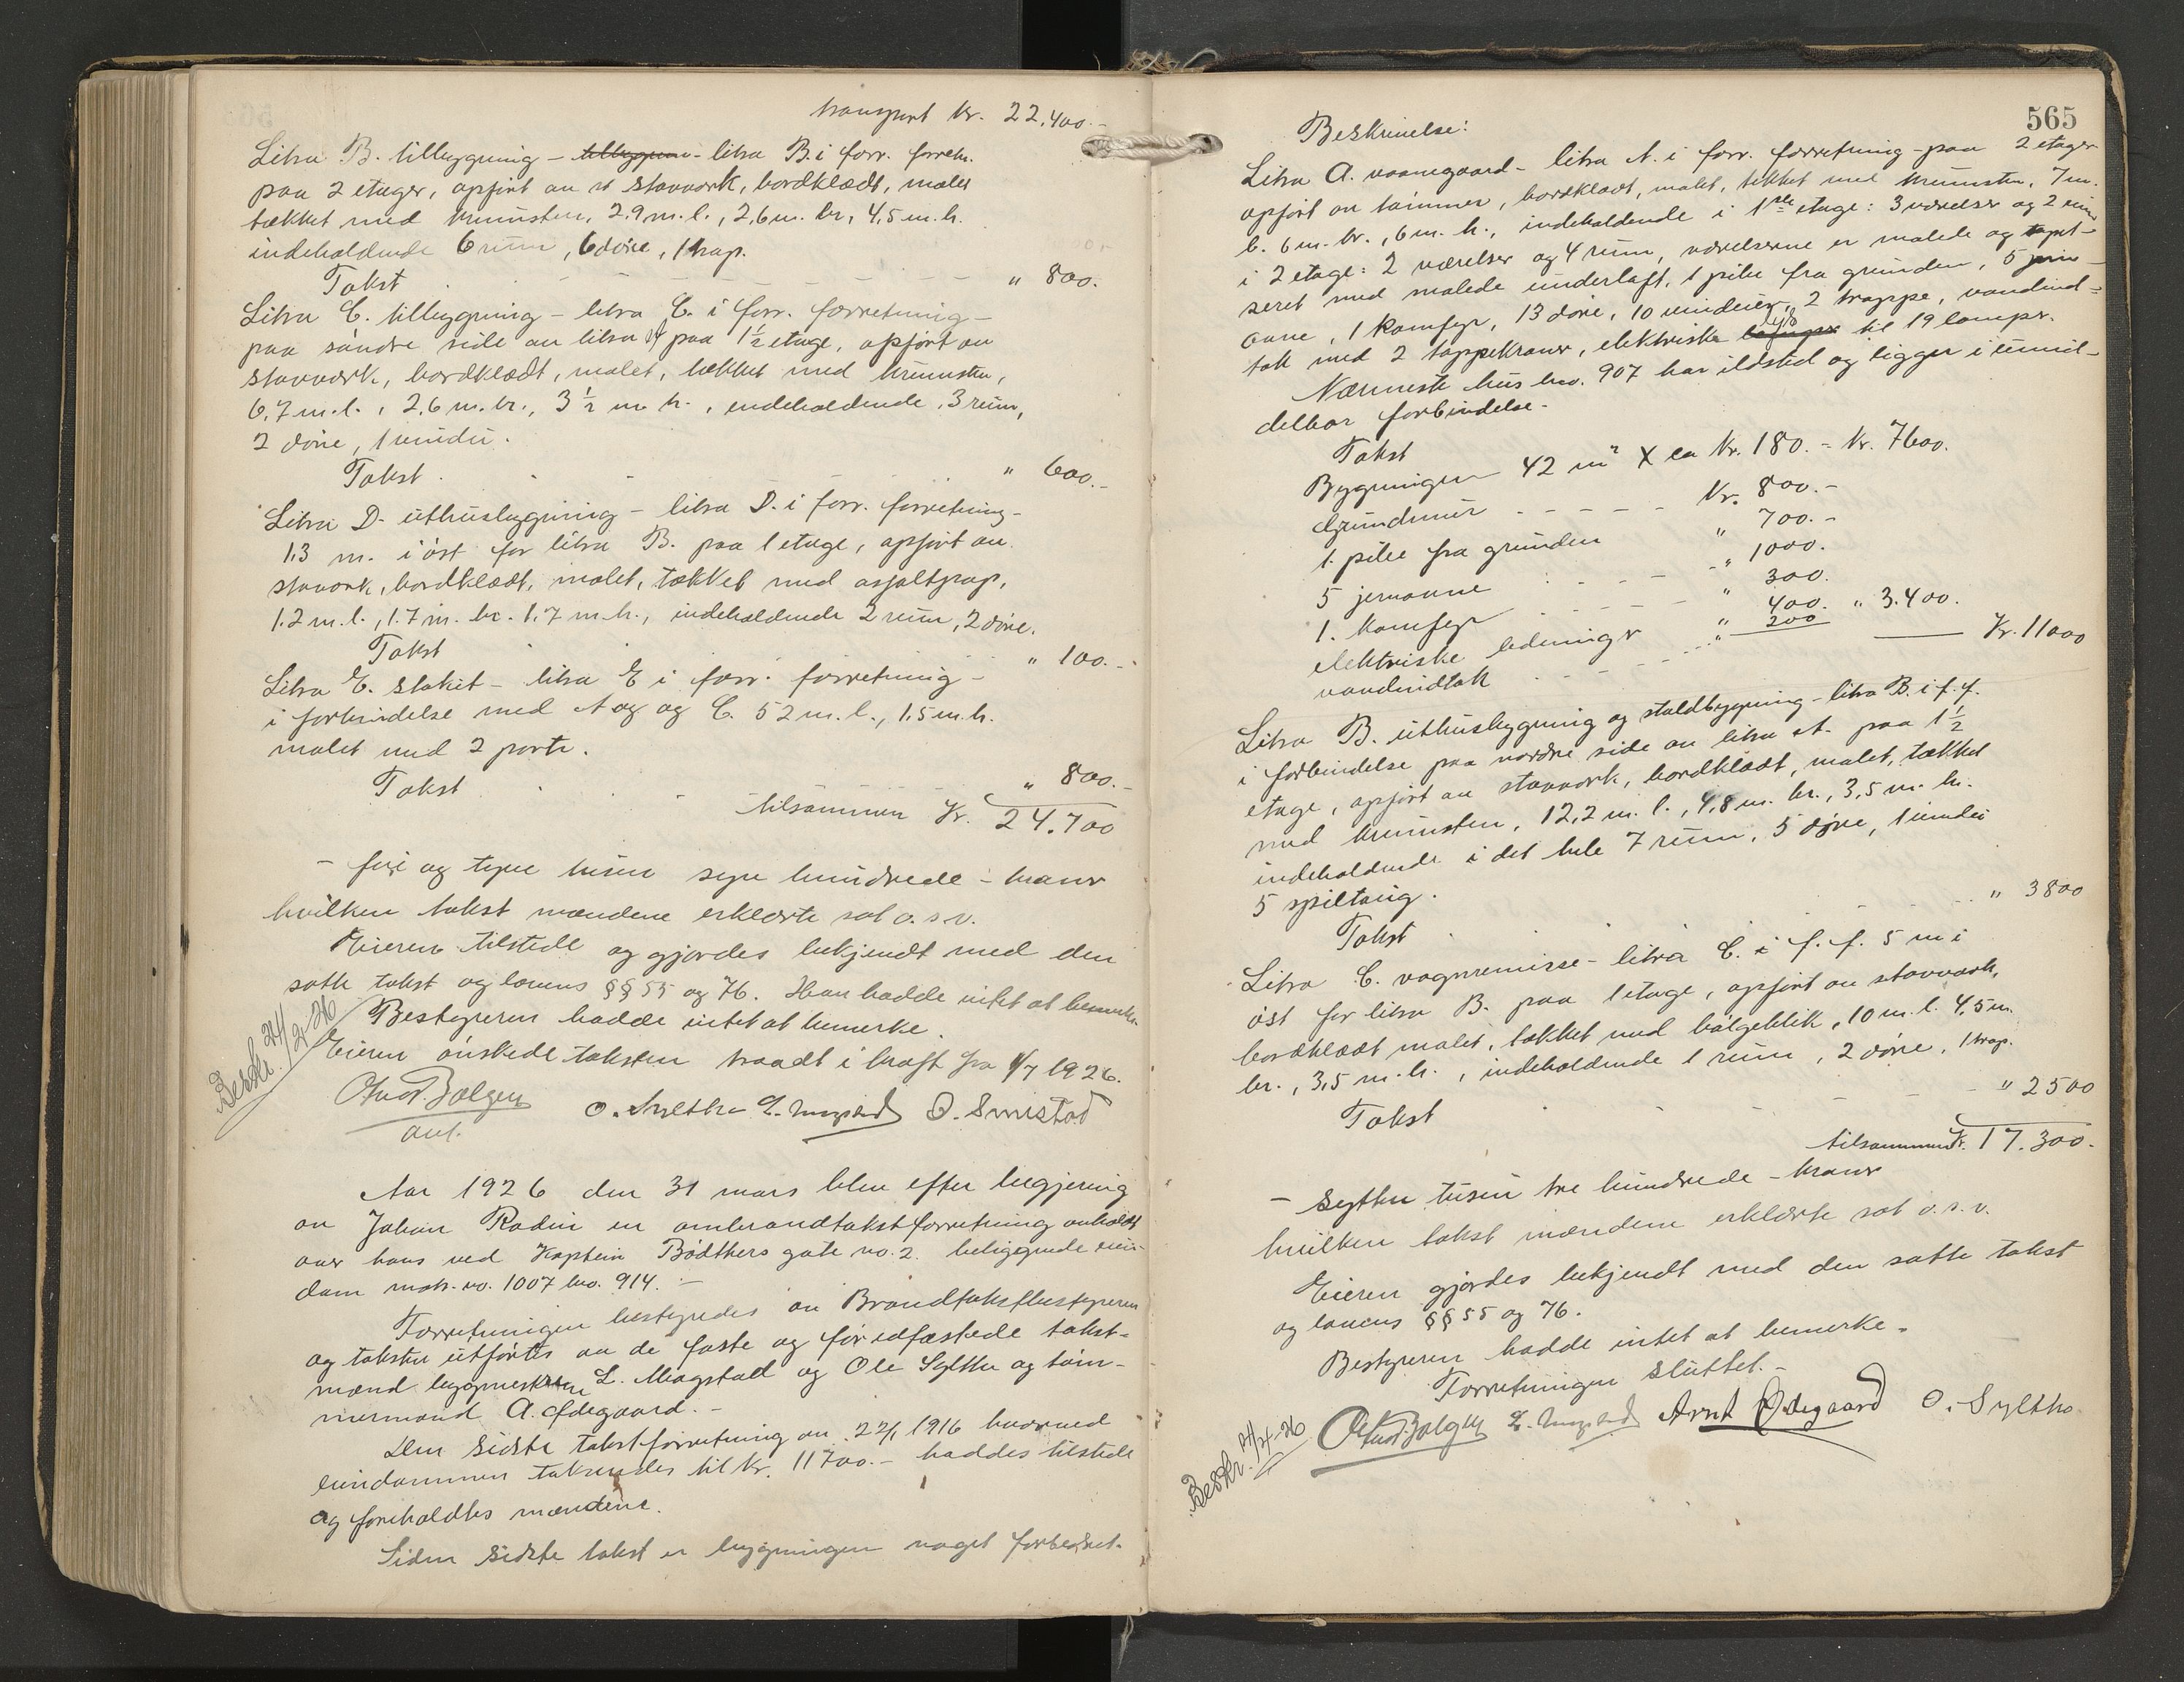 transport Kr. 22.400.-
Litra B. tilbygning - tilbygnin - litra B. i forr. forretn.
paa 2 etager, opført av stavverk, bordklædt, malet
tækket med krumsten, 2.9 m. l., 2,6 m. br., 4,5 m. h.
indeholdende 6 rum, 6 døre, 1 trap.
Takst " 800.
Litra C. tilbygning - litra C. i forr. forretning -
paa søndre side av litra A paa 1½ etage, opført av
stavverk, bordklædt, malet, tækket med krumsten,
6.7 m. l., 2,6 m. br., 3½ m h., indeholdende 3 rum,
2 døre, 1 vindu.
Takst " 600.-
Litra D. uthusbygning - litra D. i forr. forretning -
1.3 m. i øst for litra B. paa 1 etage, opført av
stavverk, bordklædt, malet, tækket med asfaltpap,
1.2 m. l., 1.7 m. br. 1.7 m. h., indeholdende 2 rum, 2 døre.
Takst " 100.-
Litra E. stakit - litra E i forr. forretning -
i forbindelse med A og og C. 52 m. l., 1.5 m. h.
malet med 2 porte.
Takst " 800.-
tilsammen Kr. 24.700
- fire og tyve tusen syv hundrede - kroner
hvilken takst mændene erklærte sat o. s. v.
Eieren tilstede og gjordes bekjendt med den
satte takst og lovens §§ 55 og 76. Han hadde intet at bemerke.
Bestyreren hadde intet at bemerke.
Eieren ønskede taksten traadt i kraft fra 1/7 1926.
Beskr. 24/12-26
O. Syltho L. Magstad O. Smistad
Aar 1926 den 31 mars blev efter begjering
av Johan Rodin en ombrandtakstforretning avholdt
over hans ved Kaptein Bødtkers gate no. 2. beliggende eien-
dom matr. no. 1007 bno. 914. -
Forretningen bestyredes av Brandtakstbestyreren
og taksten utførtes av de faste og før edfæstede takst-
mænd bygmestrene L. Magstad og Ole Syltho og tøm-
mermand A. Ødegaard. -
Den sidste takstforretning av 22/1 1916 hvorved
eiendommen takseredes til Kr. 11700.- haddes tilstede
og foreholdtes mændene.
Siden sidste takst er bygningen noget forbedret.
565
Beskrivelse:
Litra A. vaaningsgaard - litra A. i forr. forretning - paa 2 etager
opført av tømmer, bordklædt, malet, tækket med krumsten, 7 m.
l. 6 m. br., 6 m. h., indeholdende i 1ste etage: 3 værelser og 2 rum
i 2 etage: 2 værelser og 4 rum, værelserne er malede og tapet-
seret med malede underloft, 1 pibe fra grunden, 5 jern-
ovne, 1 komfyr, 13 døre, 10 vinduer, 2 trappe, vandind-
tak med 2 tappekraner, elektriske lys til 19 lamper.
Nærmeste hus bno. 907 har ildsted og ligger i umid-
delbar forbindelse.
Takst
Bygningen 42 m² X ca Kr. 180. = Kr. 7600.
Grundmur Kr. 800.-
1. pibe fra grunden " 700.-
5 jernovne " 1000.
1. komfyr " 300.
elektriske ledninger " 400. " 3.400.
vandindtak " 200 Kr. 11000
Litra B. uthusbygning og staldbygning - litra B. i f. f.
i forbindelse paa nordre side av litra A. paa 1½
etage, opført av stavverk, bordklædt, malet, tækket
med krumsten, 12,2 m. l., 4,8 m. br., 3,5 m. h.
indeholdende i det hele 7 rum, 5 døre, 1 vindu
5 spiltaug.
Takst " 3800
Litra C. vognremisse - litra C. i f. f. 5 m i
øst for litra B. paa 1 etage, opført av stavverk,
bordklædt malet, tækket med bølgeblik, 10 m. l. 4,5 m.
br., 3,5 m. h., indeholdende 1 rum, 2 døre, 1 trap.
Takst " 2500
tilsammen Kr. 17.300.-
- Sytten tusen tre hundrede - kroner
hvilken takst mændene erklærte sat o. s. v.
Eieren gjordes bekjendt med den satte takst
og lovens §§ 55 og 76.
Bestyreren hadde intet at bemerke.
Forretningen sluttet. -
L. Magstad Arnt Ødegaard O. Syltho
Beskr. 14/4-26